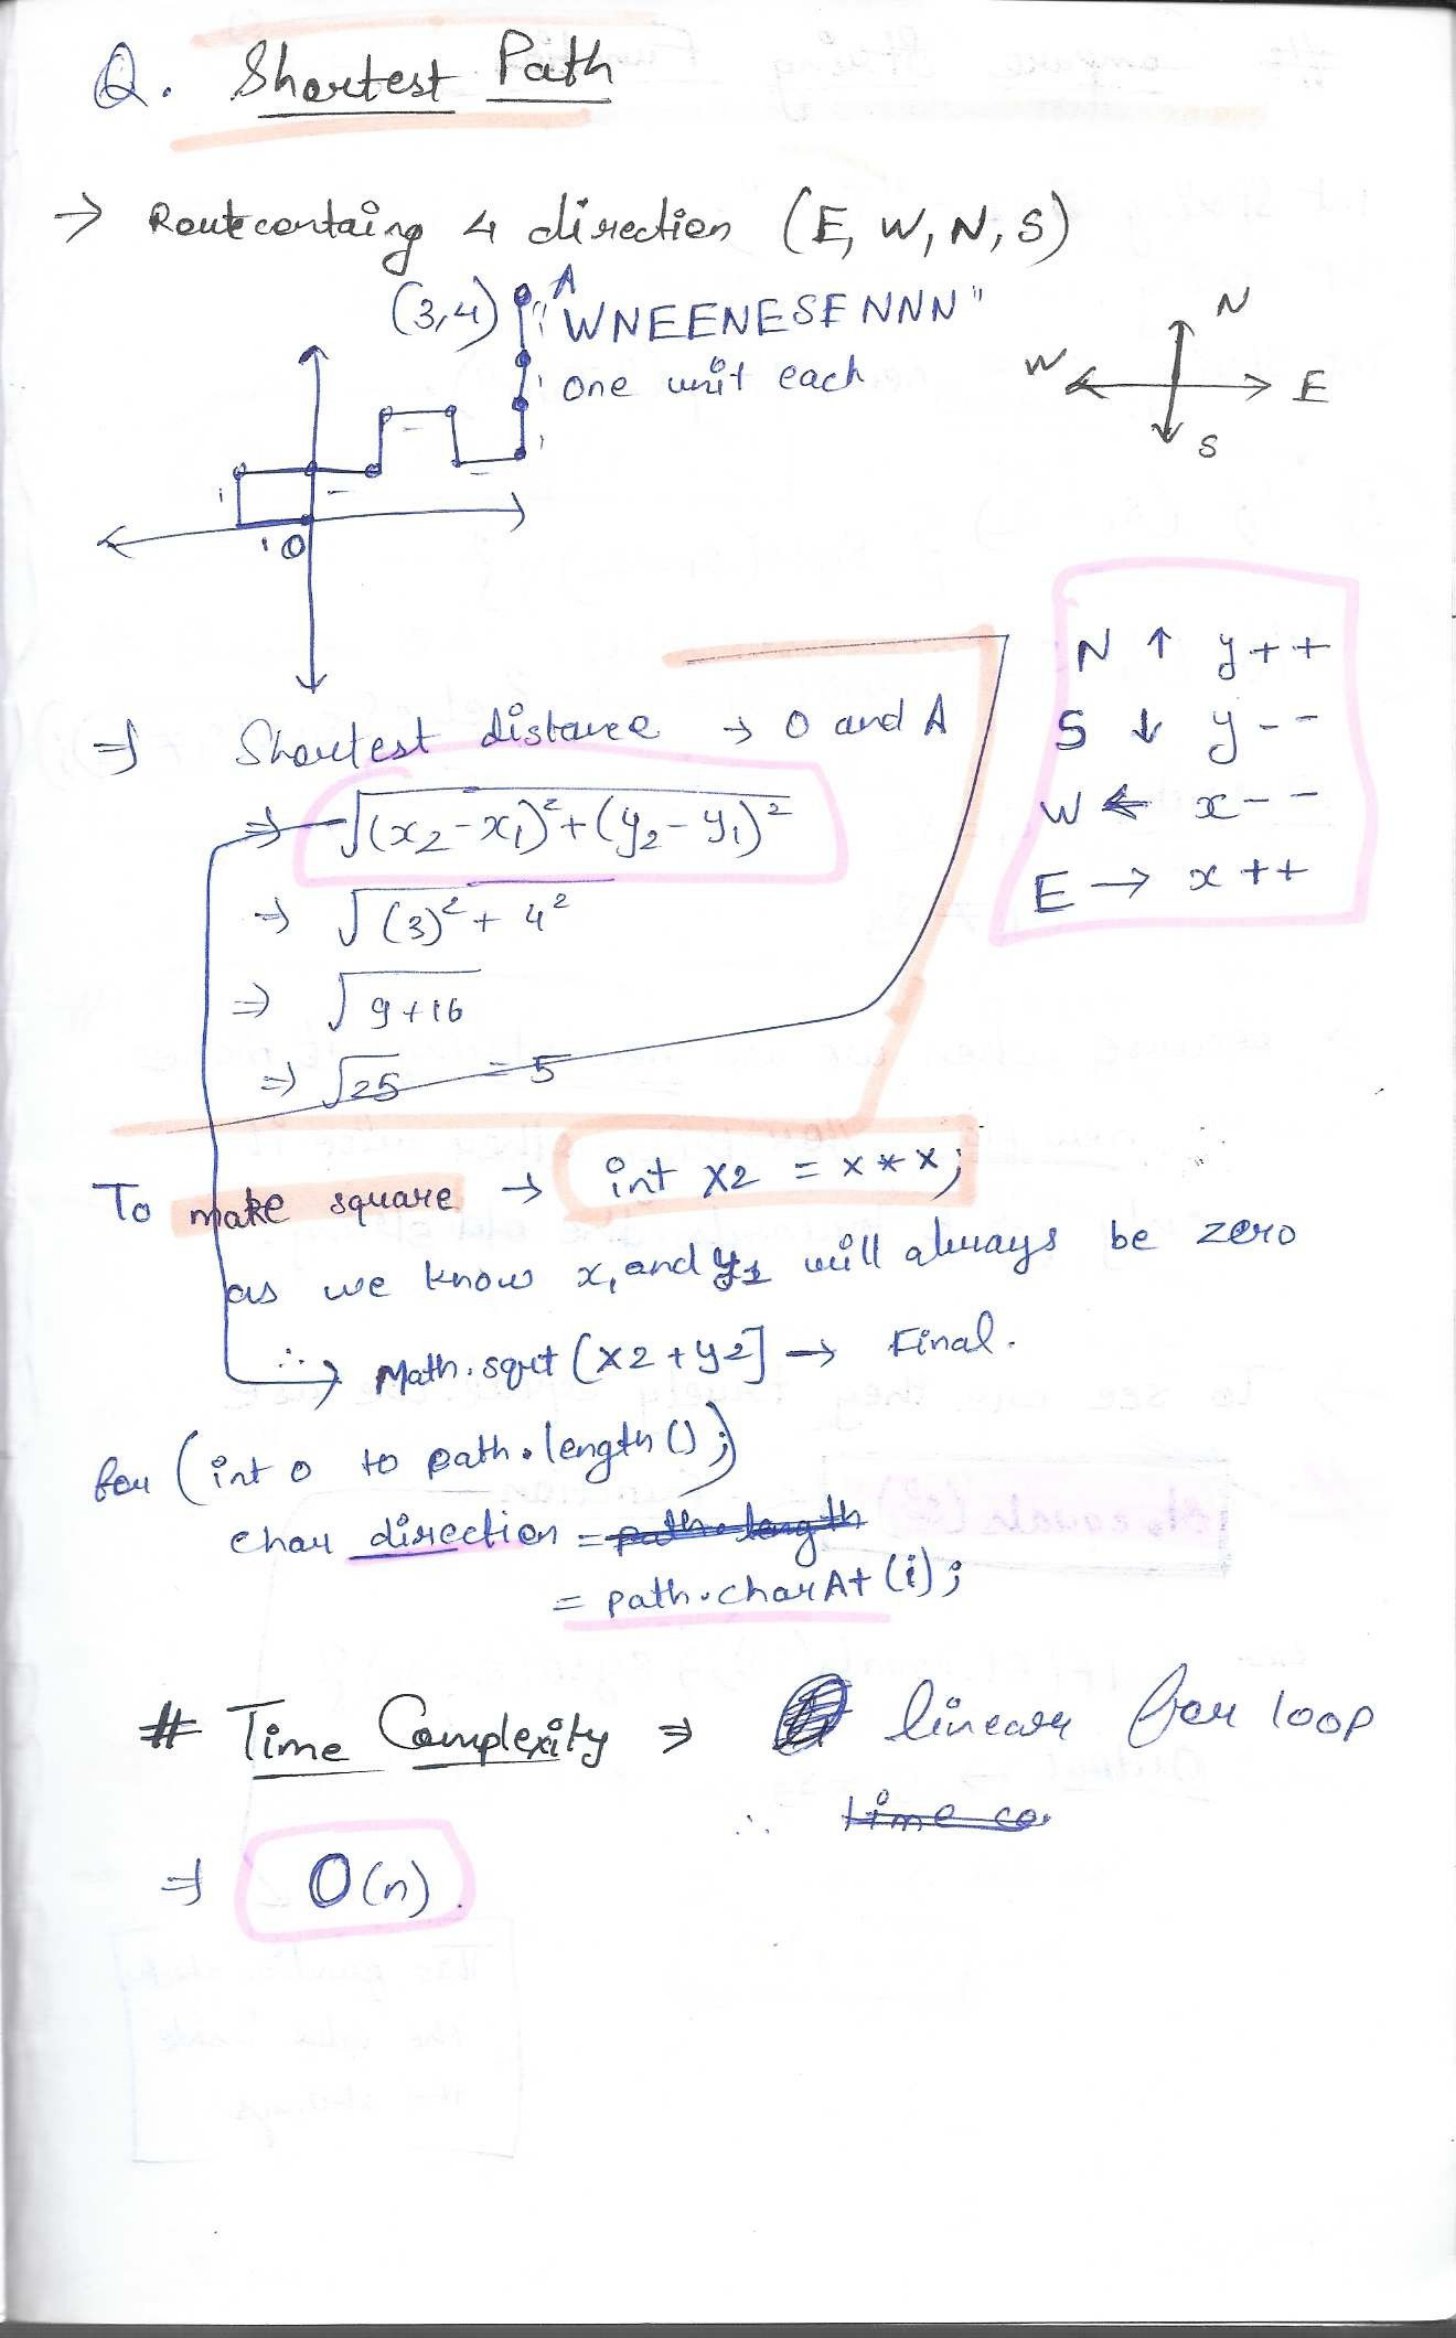 Q. Shortest Path
→ Route containg 4 direction (E, W, N, S)
(3,4) A
"WNEENESENNN"
one unit each
N
W E
S
1 O
N ↑ y++
S ↓ y--
W ← x--
E → x++
⇒ Shortest distance → O and A
⇒ √(x₂-x₁)²+(y₂-y₁)²
⇒ √(3)²+4²
⇒ √9+16
⇒ √25 = 5
To make square → int x2 = x*x;
as we know x₁ and y₁ will always be zero
∴ → Math.sqrt(x2+y2] → Final.
for (int 0 to path.length();)
char direction = path.length
= path.charAt(i);
# Time Complexity ⇒ linear for loop
∴ time co
⇒ O(n).